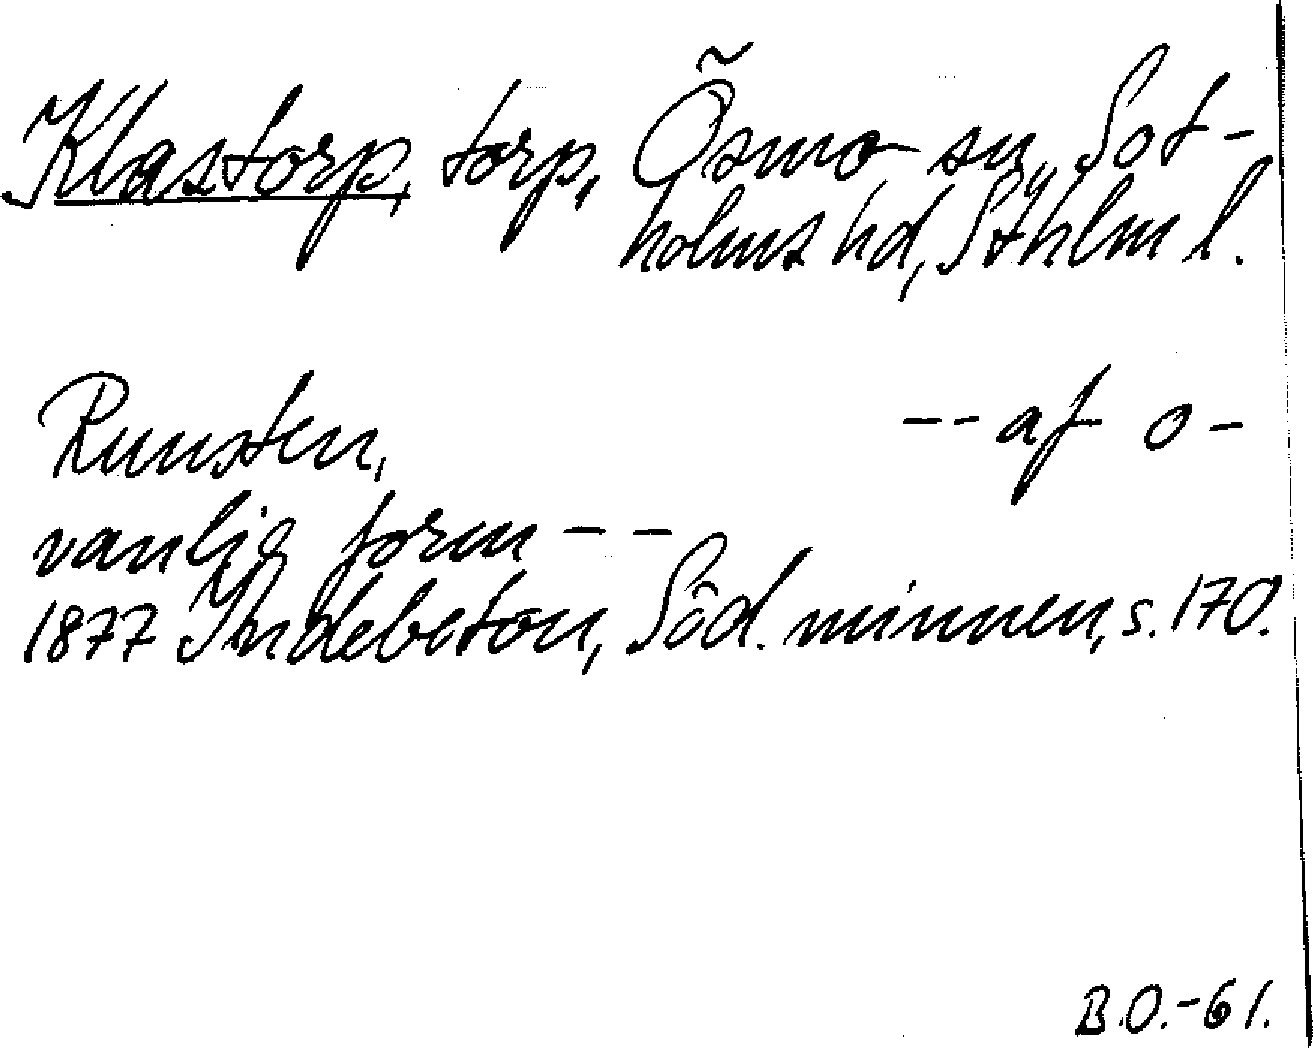 Klastorp, torp, Ösmo sn, Sot-
holms hd, Sthlm l.
Runsten, -- af o-
vanlig form --
1877 Indebetou, Söd. minnen, s. 170.
B.O.-61.